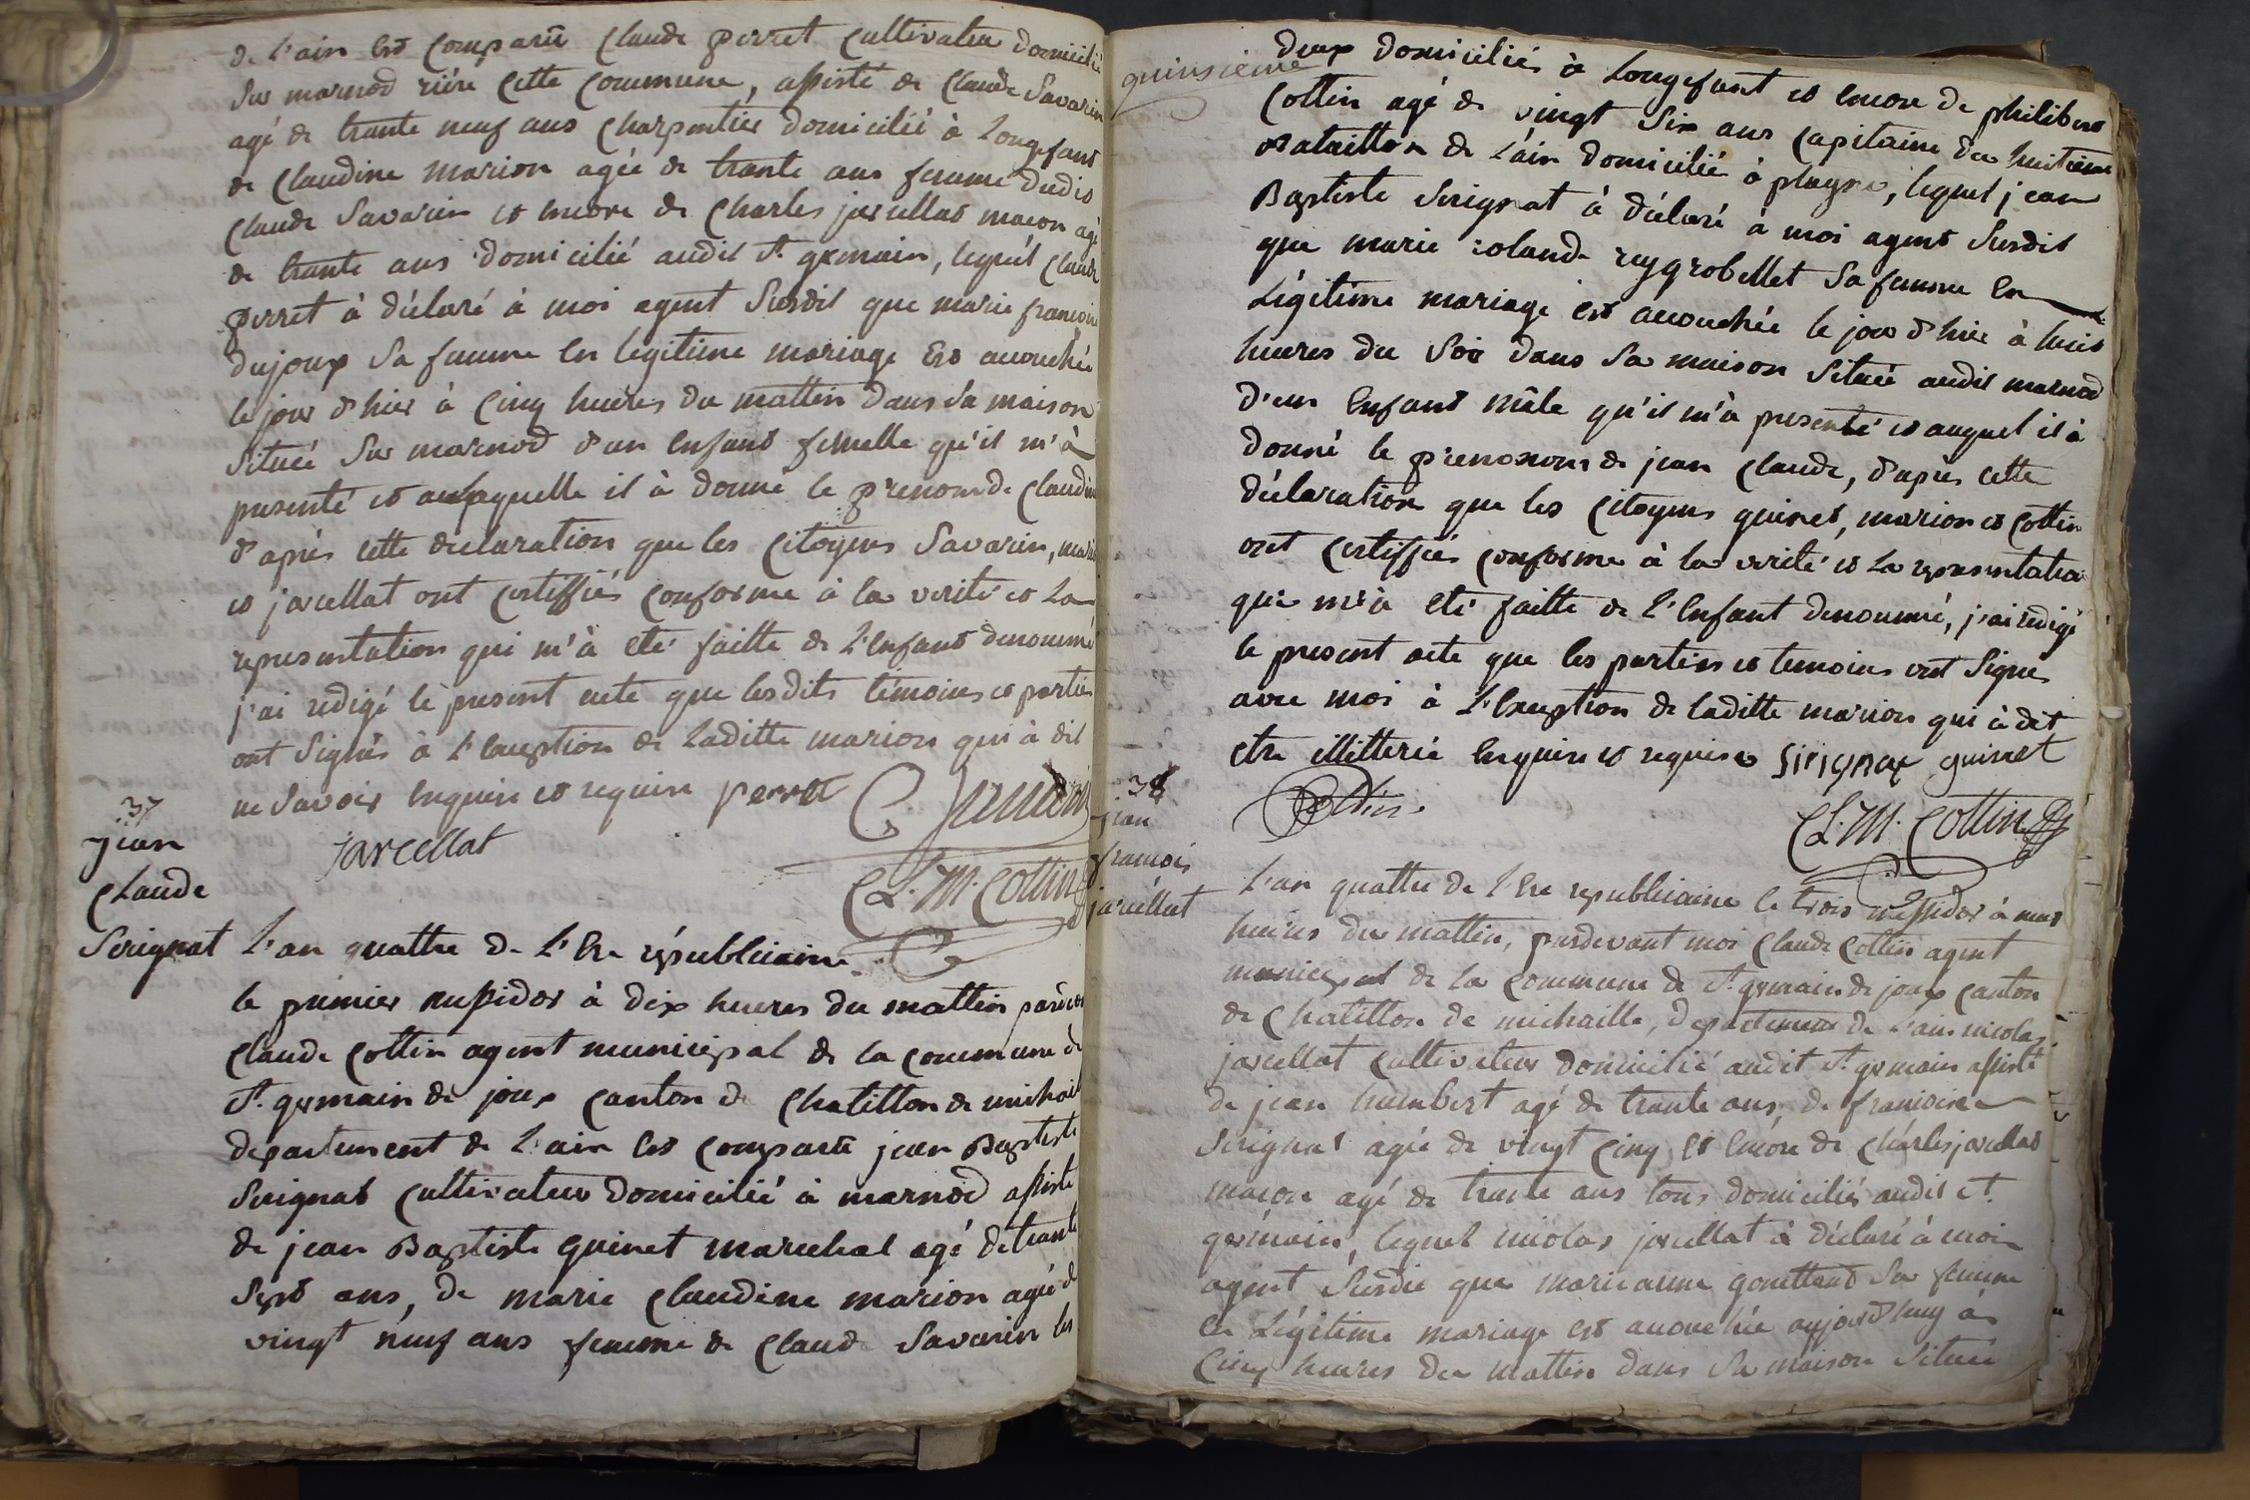 de l'ain est comparu Claude perret Cultivateu domicilié
Sur marnod rière cette Commune, assisté de Claude Savarin
agé de trante neuf ans Charpentier domicilié à Longefant
de Claudine marion agée de trante ans femme dudit
Claude Savarin et encore de Charles jarcellat macon agé
de trante ans domicilié audit St. germain, lequel Claude
perret à déclaré à moi agent Susdit que marie francoise
dujoux Sa femme en legitime mariage Est accouchée
le jour d'hier à Cinq heures du mattin dans Sa maison
Située Sur marnod d'un enfant femelle qu'il m'à
presenté et au laquelle il à donné le prenom de Claudine
d'après cette declaration que les Citoyens Savarin, marion
et jarcellat ont Certiffiés Conforme à la verité et La
representation qui m'à eté faitte de l'enfant denommé
j'ai redigé le present acte que lesdits témoins et parties
ont Signés à l'exception de Laditte marion qui à dit
ne Savoir enquise et requise perret
jarcellat
CL. M. Collin
37
jean
Claude
Sirignat
L'an quattre de L'Ere républicaine
le premier messidor à dix heures du mattin pardevant
Claude Cottin agent municipal de la Commune de
St. germain de joux Canton de Chatillon de michaille
departement de l'ain est Comparu jean Baptiste
Sirignat Cultivateur domicilié à marnod assisté
de jean Baptiste guinet marechal agé de trante
Sept ans, de marie Claudine marion agée de
vingt neuf ans femme de Claude Savarin les
quinsieme
deux domiciliés à Longefant et encore de philibert
Cottin agé de vingt Six ans Capitaine du huitieme
Bataillon de l'ain domicilié à plagne, lequel jean
Baptiste Sirignat à déclaré à moi agent Susdit
que marie rolande reygrobellet Sa femme en
Légitime mariage est accouchée le jour d'hier à huit
heures du Soir dans Sa maison Située audit marnod
d'un enfant mâle qu'il m'à presenté et auquel il à
donné le prenom de jean Claude, d'après cette
déclaration que les Citoyens guinet, marion et Cottin
ont Certiffiés Conforme à la verité et La representation
qui m'à eté faitte de l'Enfant denommé, j'ai redigé
le present acte que les parties et temoins ont Signés
avec moi à l'Exception de laditte marion qui à dit
etre illitterée enquise et requise Sirignat guinet
Cottin
CL. M. Cottin
38
jean
francois
jarcellat
L'an quattre de l'Ere republicaine le trois messidor à neuf
heures du mattin, pardevant moi Claude Cottin agent
municipal de la Commune de St. germain de joux Canton
de Chatillon de michaille, departement de l'ain nicolas
jarcellat Cultivateur domicilié audit St. germain assisté
de jean humbert agé de trante ans, de francoise
Sirignat agée de vingt Cinq et encore de Charles jarcellat
macon agé de trante ans tous domiciliés audit St.
germain, lequel nicolas jarcellat à déclaré à moi
agent Susdit que marie anne gonettant Sa femme
en Légitime mariage est accouchée aujourd'huy à
Cinq heures du mattin dans Sa maison Située